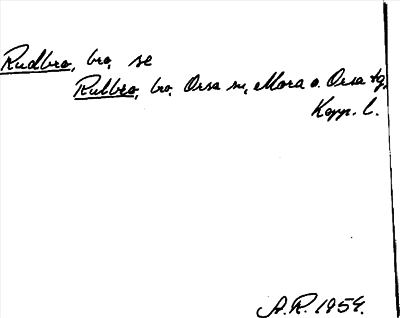 Rudbro, bro, se
Rulbro, bro, Orsa sn, Mora o. Orsa tg,
Kopp. l.
A.R. 1954.